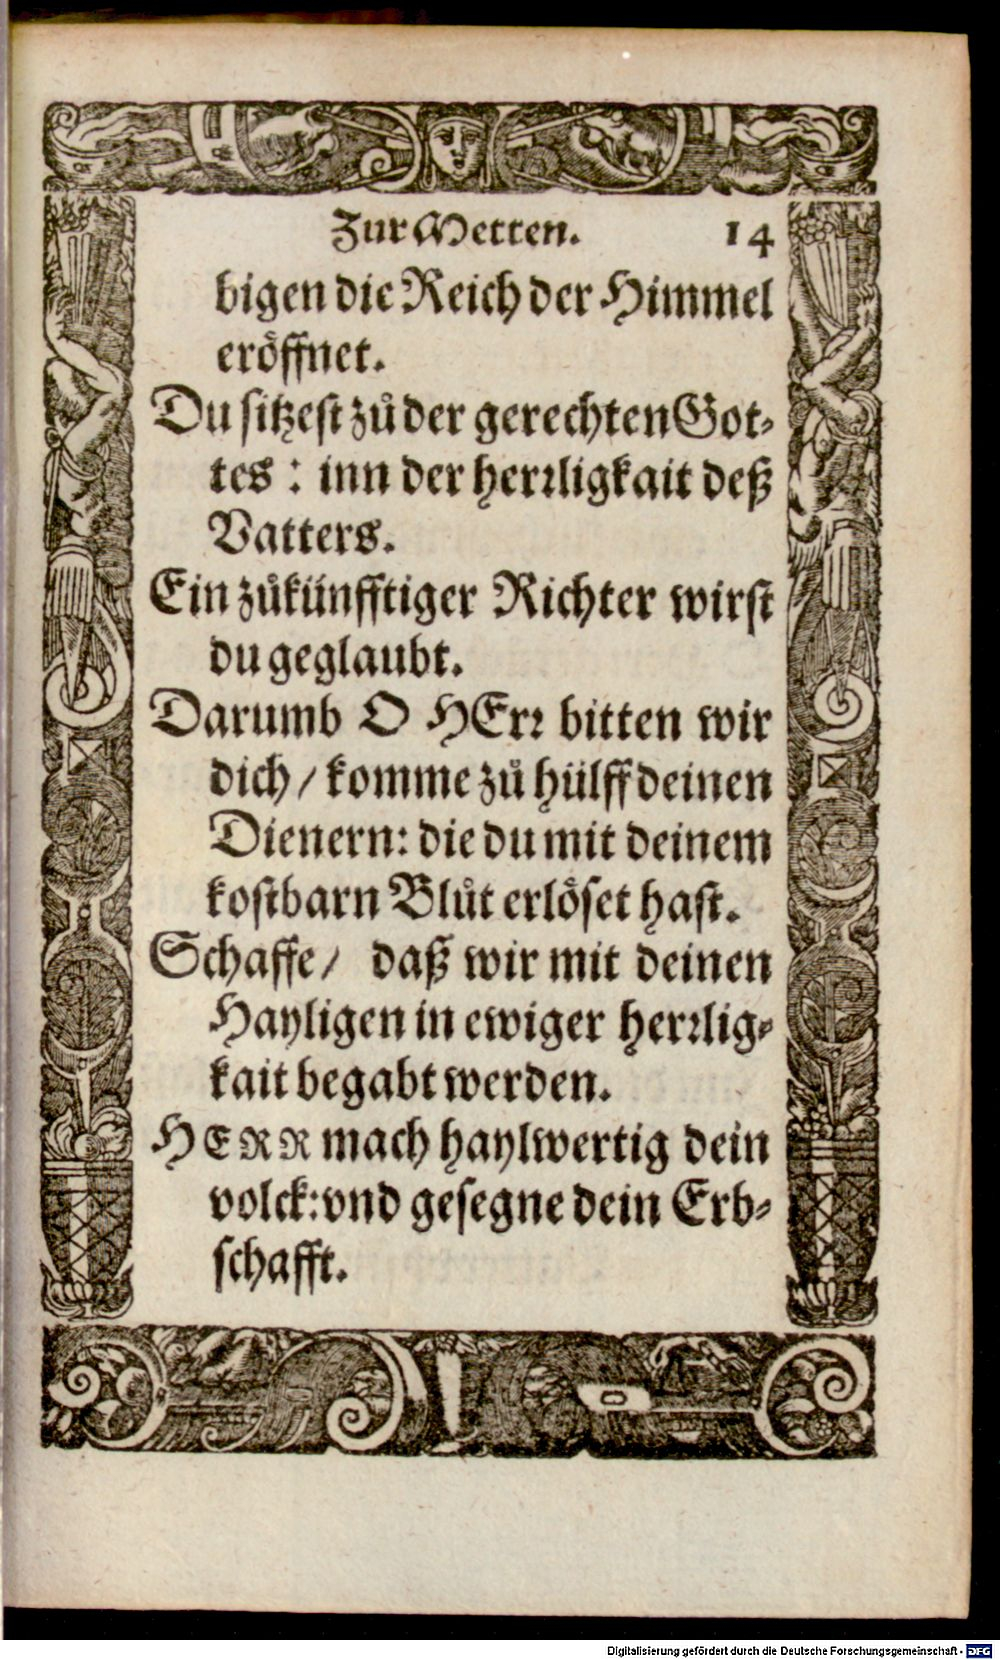 Zur Metten. 14
bigen die Reich der Himmel
eröffnet.
Du sitzest zů der gerechten Got-
tes : inn der herꝛligkait deß
Vatters.
Ein zůkünfftiger Richter wirst
du geglaubt.
Darumb O HErꝛ bitten wir
dich / komme zů hülff deinen
Dienern: die du mit deinem
kostbarn Blůt erlöset hast.
Schaffe / daß wir mit deinen
Hayligen in ewiger herꝛlig-
kait begabt werden.
HERR mach haylwertig dein
volck: vnd gesegne dein Erb-
schafft.
Digitalisierung gefördert durch die Deutsche Forschungsgemeinschaft - DFG